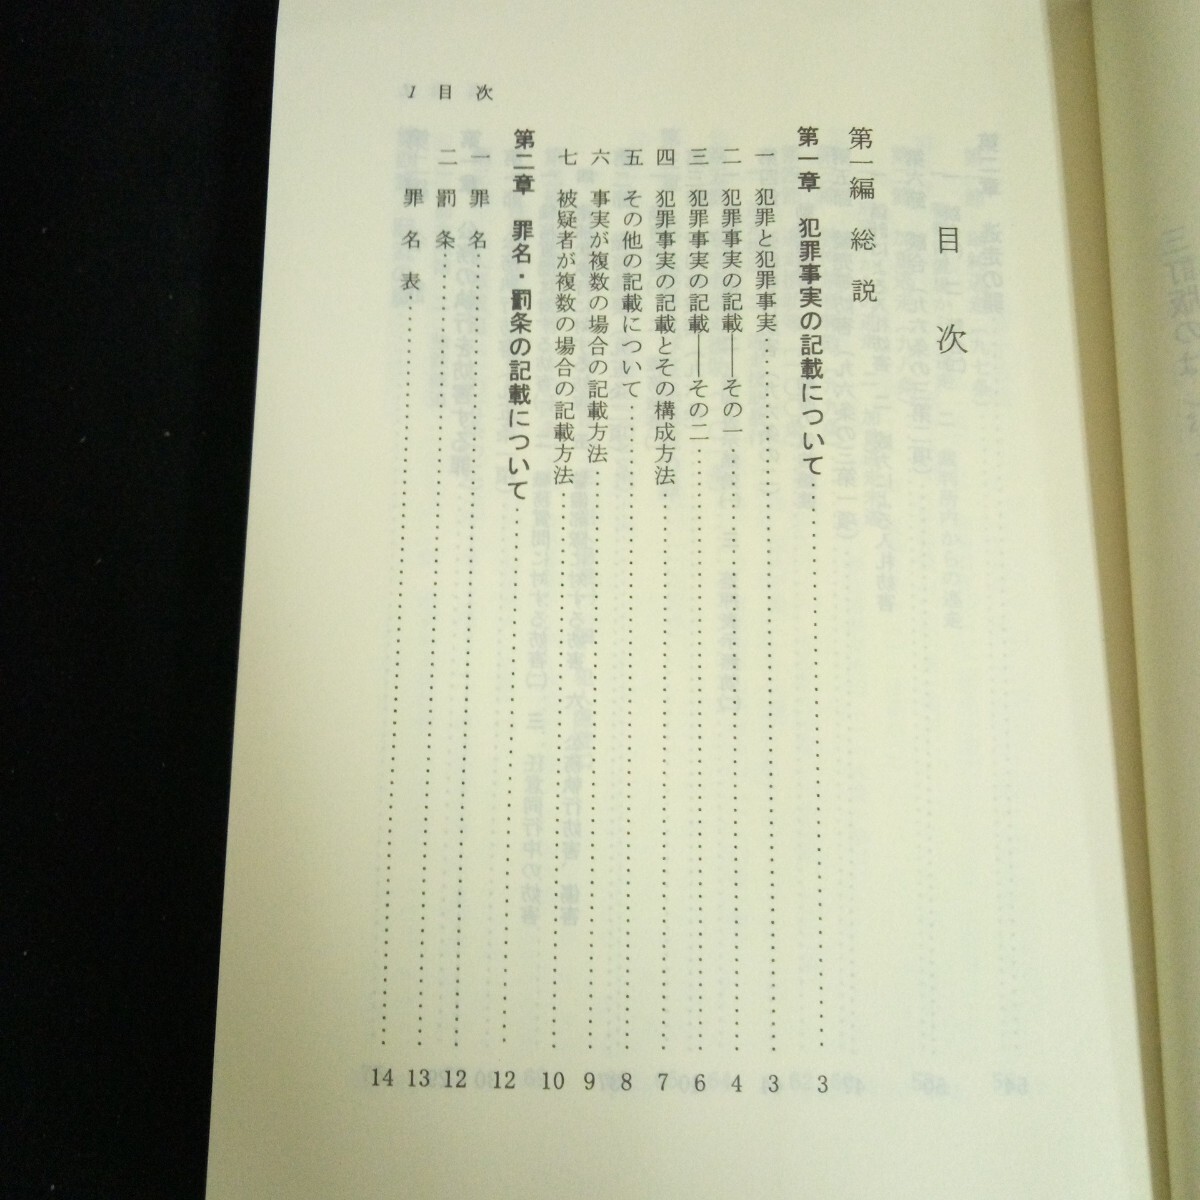 目次
第一編 総説
第一章 犯罪事実の記載について……3
一 犯罪と犯罪事実……3
二 犯罪事実の記載――その一……4
三 犯罪事実の記載――その二……6
四 犯罪事実の記載とその構成方法……7
五 その他の記載について……8
六 事実が複数の場合の記載方法……9
七 被疑者が複数の場合の記載方法……10
第二章 罪名・罰条の記載について……12
一 罪名……12
二 罰条……13
罪名表……14
1 目次